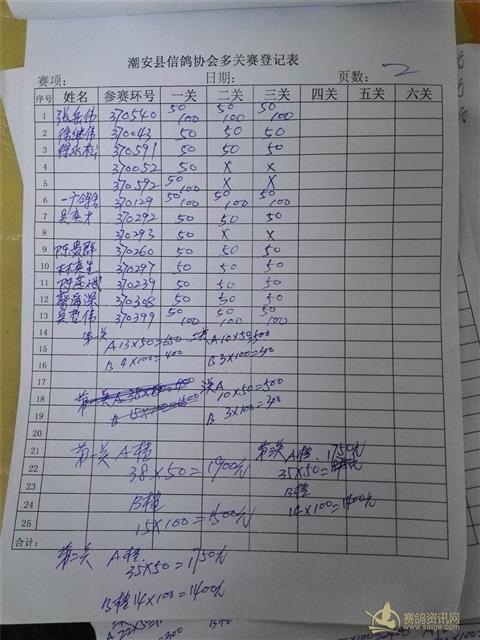 潮安县信鸽协会多关赛登记表
赛项： 日期： 页数：2
序号 姓名 参赛环号 一关 二关 三关 四关 五关 六关
1 张岳伟 370540 50 100 50 100 50 100
2 徐继伟 370043 50 50 50
3 370591 50 50 50
4 370052 50 X X
5 370592 50 100 X X
6 370129 50 100 50 100 50 100
7 370292 50 50 50
8 370293 50 X X
9 陈贵群 370260 50 50 50
10 林英生 370297 50 50 50
11 370239 50 50 50
12 370308 50 50 50
13 吴哲伟 370399 50 100 50 100 50 100
14 第一关
15 A 13×50=650 二关 A 10×50=500
16 B 4×100=400 B 3×100=300
17 三关 A
18 第一关 A 38 10×50=500
19 B 15×100=1500 B 3×100=300
20
21 第一关 A档 第三关 A档 1750元
22 38×50=1900元 35×50=
23 B档 B档
24 15×100=1500元 14×100=1400元
25
合计：
第二关 A档
35×50=1750元
B档 14×100=1400元
赛鸽资讯网
www.saige.com